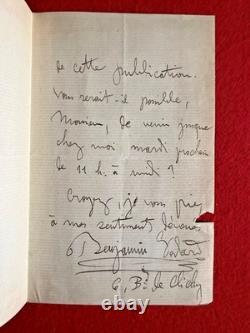 de cette publication.
Vous serait-il possible,
Monsieur, de venir jusque
chez moi mardi prochain
de 11 h. à midi ?
Croyez, je vous prie,
à mes sentiments dévoués
Benjamin Godard
6, Bd de Clichy